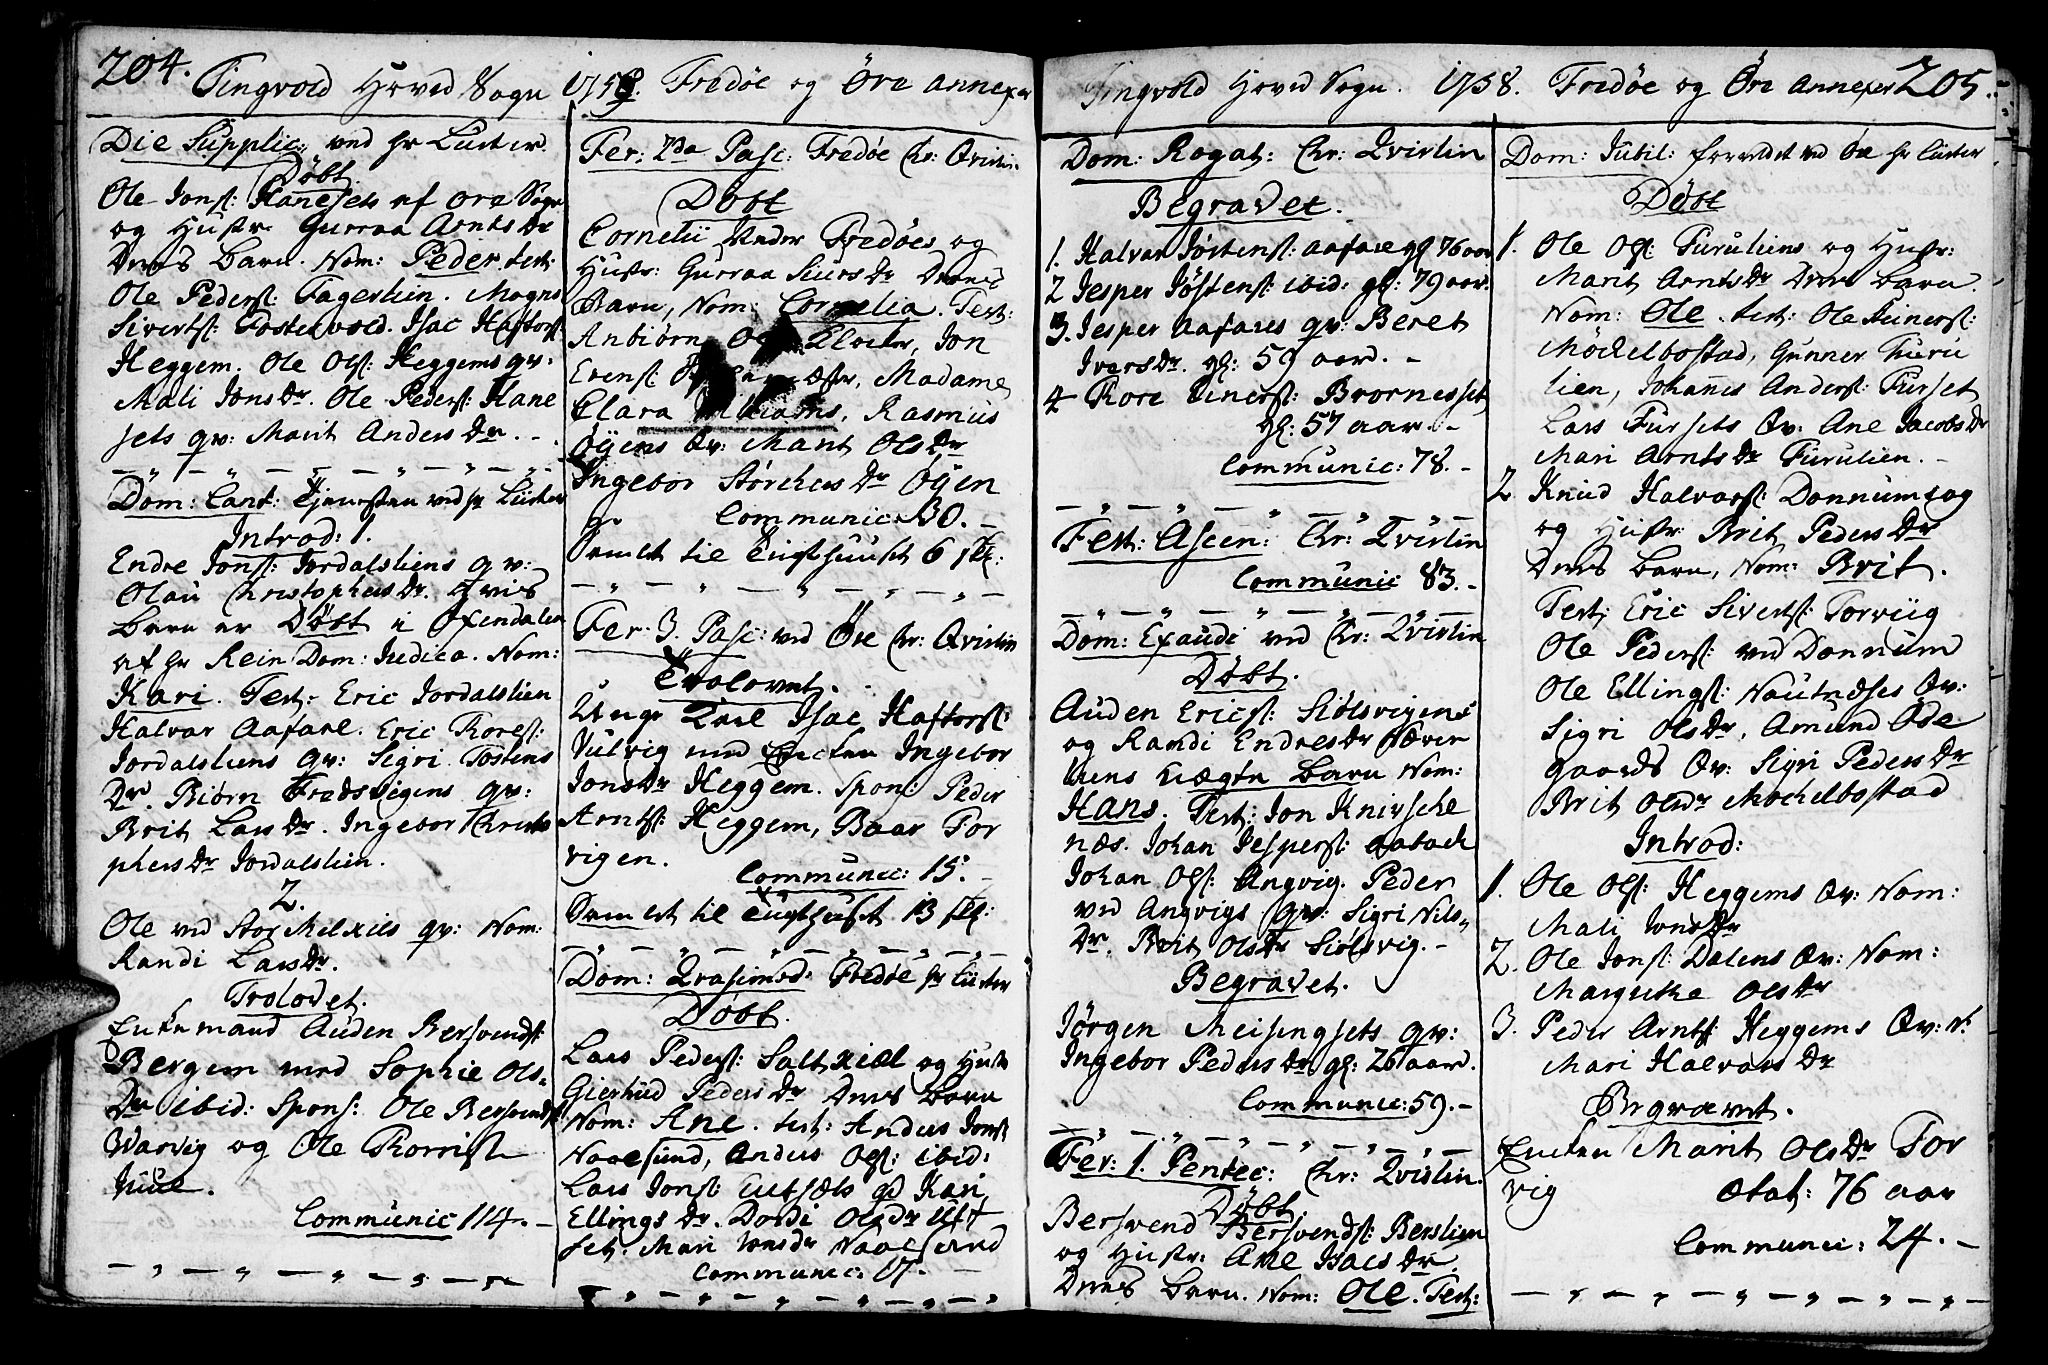 204. Tingvold Hoved Sogn 1758. Fredøe og Öre annexer
Die Supplic: ved Hr Luster
Döbt
Ole Jons: Hanesets af öre Sogn
og Hustr. Gurraa Arnts Dr
Deres Barn. Nom: Peder. test:
Ole Peders: Fagerlien. Mogns
Siverts: Fostervold. Isac Haftors:
Heggem. Ole Ols: Heggems qv:
Mali Jons Dr. Ole Peders: Hane
sets qv: Marit Anders Dr.
Dom: Cant: Tjenesten ved Hr Luster
Introd: 1.
Endre Jons: Jordalsliens qv:
Olau Christophers Dr. hvis
Barn er Döbt i Öxendalen
af Hr Rein Dom: Judica. Nom:
Kari. Test: Eric Jordalslien
Halvar Aafarl. Eric Tores:
Jordalsliens qv: Sigri Tostens
Dr. Biörn Fredsvigens qv:
Brit Lars Dr. Ingebor Christo
phers Dr Jordalslien.
2.
Ole ved Stor Melxils qv: Nom:
Randi Lars Dr.
Trolovet.
Enkemand Auden Bersvends:
Bergem med Sophie Ols
Dr ibid: Spons: Ole Bersvends:
Warvig og Ole
Juul.
Communic 114.
Fer: 2da Pasc: Fredöe Chr: Qvistin
Döbt
Cornelii Fredöes og
Hustr: Gurraa Siurs Dr Deres
Barn, Nom: Cornelia. Test:
Anbiörn Klocker, Jon
Evens: Madame
Clara Rasmus
Öyens Qv: Marit Ols Dr
Ingebor Störchers Dr Öyen
Communic: 30.
Samlet til Tugthuuset 6 sk:
Fer: 3. Pasc: ved Öre Chr: Qvistin
Trolovet.
Unge Karl Isac Haftors:
Vulvig med Encken Ingebor
Jons Dr Heggem. Spons: Peder
Arnts: Heggem, Baar Tor
vigen.
Communic: 15.
Samlet til Tugthuset 13 sk:
Dom: Qvasimod: Fredöe Hr Luster
Döbt.
Lars Peders: Saltxiæl og Hustr
Giertrud Peders Dr Deres Barn
Nom: Ane. test: Anders Jons:
Naaesund, Anders Ols: ibid:
Lars Jons: qv Kari
Ellings Dr. Dordi Ols Dr
set: Mari Jons dr Naaesund
Communic: 17.
Tingvold Hoved Sogn. 1758. Fredöe og Öre Annexer 205.
Dom: Rogat: Chr: Qvistin
Begravet.
1. Halvar Jöstens: Aafarl gl 76 aar
2 Jesper Jöstens: ibid: gl: 79 aar.
3. Jesper Aafares qv: Beret
Ivers Dr. gl: 59 aar.
4 Tore Einers: Brornesset
gl: 57 aar.
Communic: 78.
Fest: Ascen: Chr: Qvistin
Communic 83.
Dom: Exaudi ved Chr: Qvistin
Döbt.
Auden Erics: Siölsvigens
og Randi Endres Dr
liens uægte Barn Nom:
Hans. Test: Jon Knirsche
næs. Johan Jespers: Aaback
Johan Ols: Angvig. Peder
ved Angvigs qv: Sigri Nils
Dr. Brit Ols Dr Siölsvig.
Begravet.
Jörgen Meisingsets qv:
Ingebor Peders Dr gl: 26 aar.
Communic: 59.
Fer: 1. Pentec: Chr: Qvistin.
Döbt.
Bersvend Bersvends: Berslien
og Hustr: Ane Isacs Dr.
Deres Barn. Nom: Ole. Test:
Dom: Jubil: forrettet ved Öre Hr Luster
Döbt
1. Ole Ols: Furuliens og Hustr:
Marit Arnts Dr Deres Barn.
Nom: Ole. test: Ole Einers:
Möckelbostad, Gunner Furu
lien, Johannes Anders: Furset
Lars Fursets Qv: Ane Jacobs Dr
Mari Arnts Dr Furulien.
2 Knud Halvars: Donnumhog
og Hustr: Brit Peders Dr
Deres Barn, Nom: Brit.
Test: Eric Siverts: Torviig
Ole Peders: ved Donnum
Ole Ellings: Nautneses Qv:
Sigri Ols Dr, Amund Öde
gaards Qv: Sigri Peders Dr
Brit Olsdr Mockelbostad
Introd:
1. Ole Ols: Heggems Qv: Nom:
Mali Jons Dr
2. Ole Jons: Dalens Qv: Nom:
Margrethe Ols Dr
3. Peder Arnts: Heggems Qv: N:
Mari Halvars Dr
Begravet.
Encken Marit Ols Dr Tor
vig ætat: 76 aar
Communic: 24.